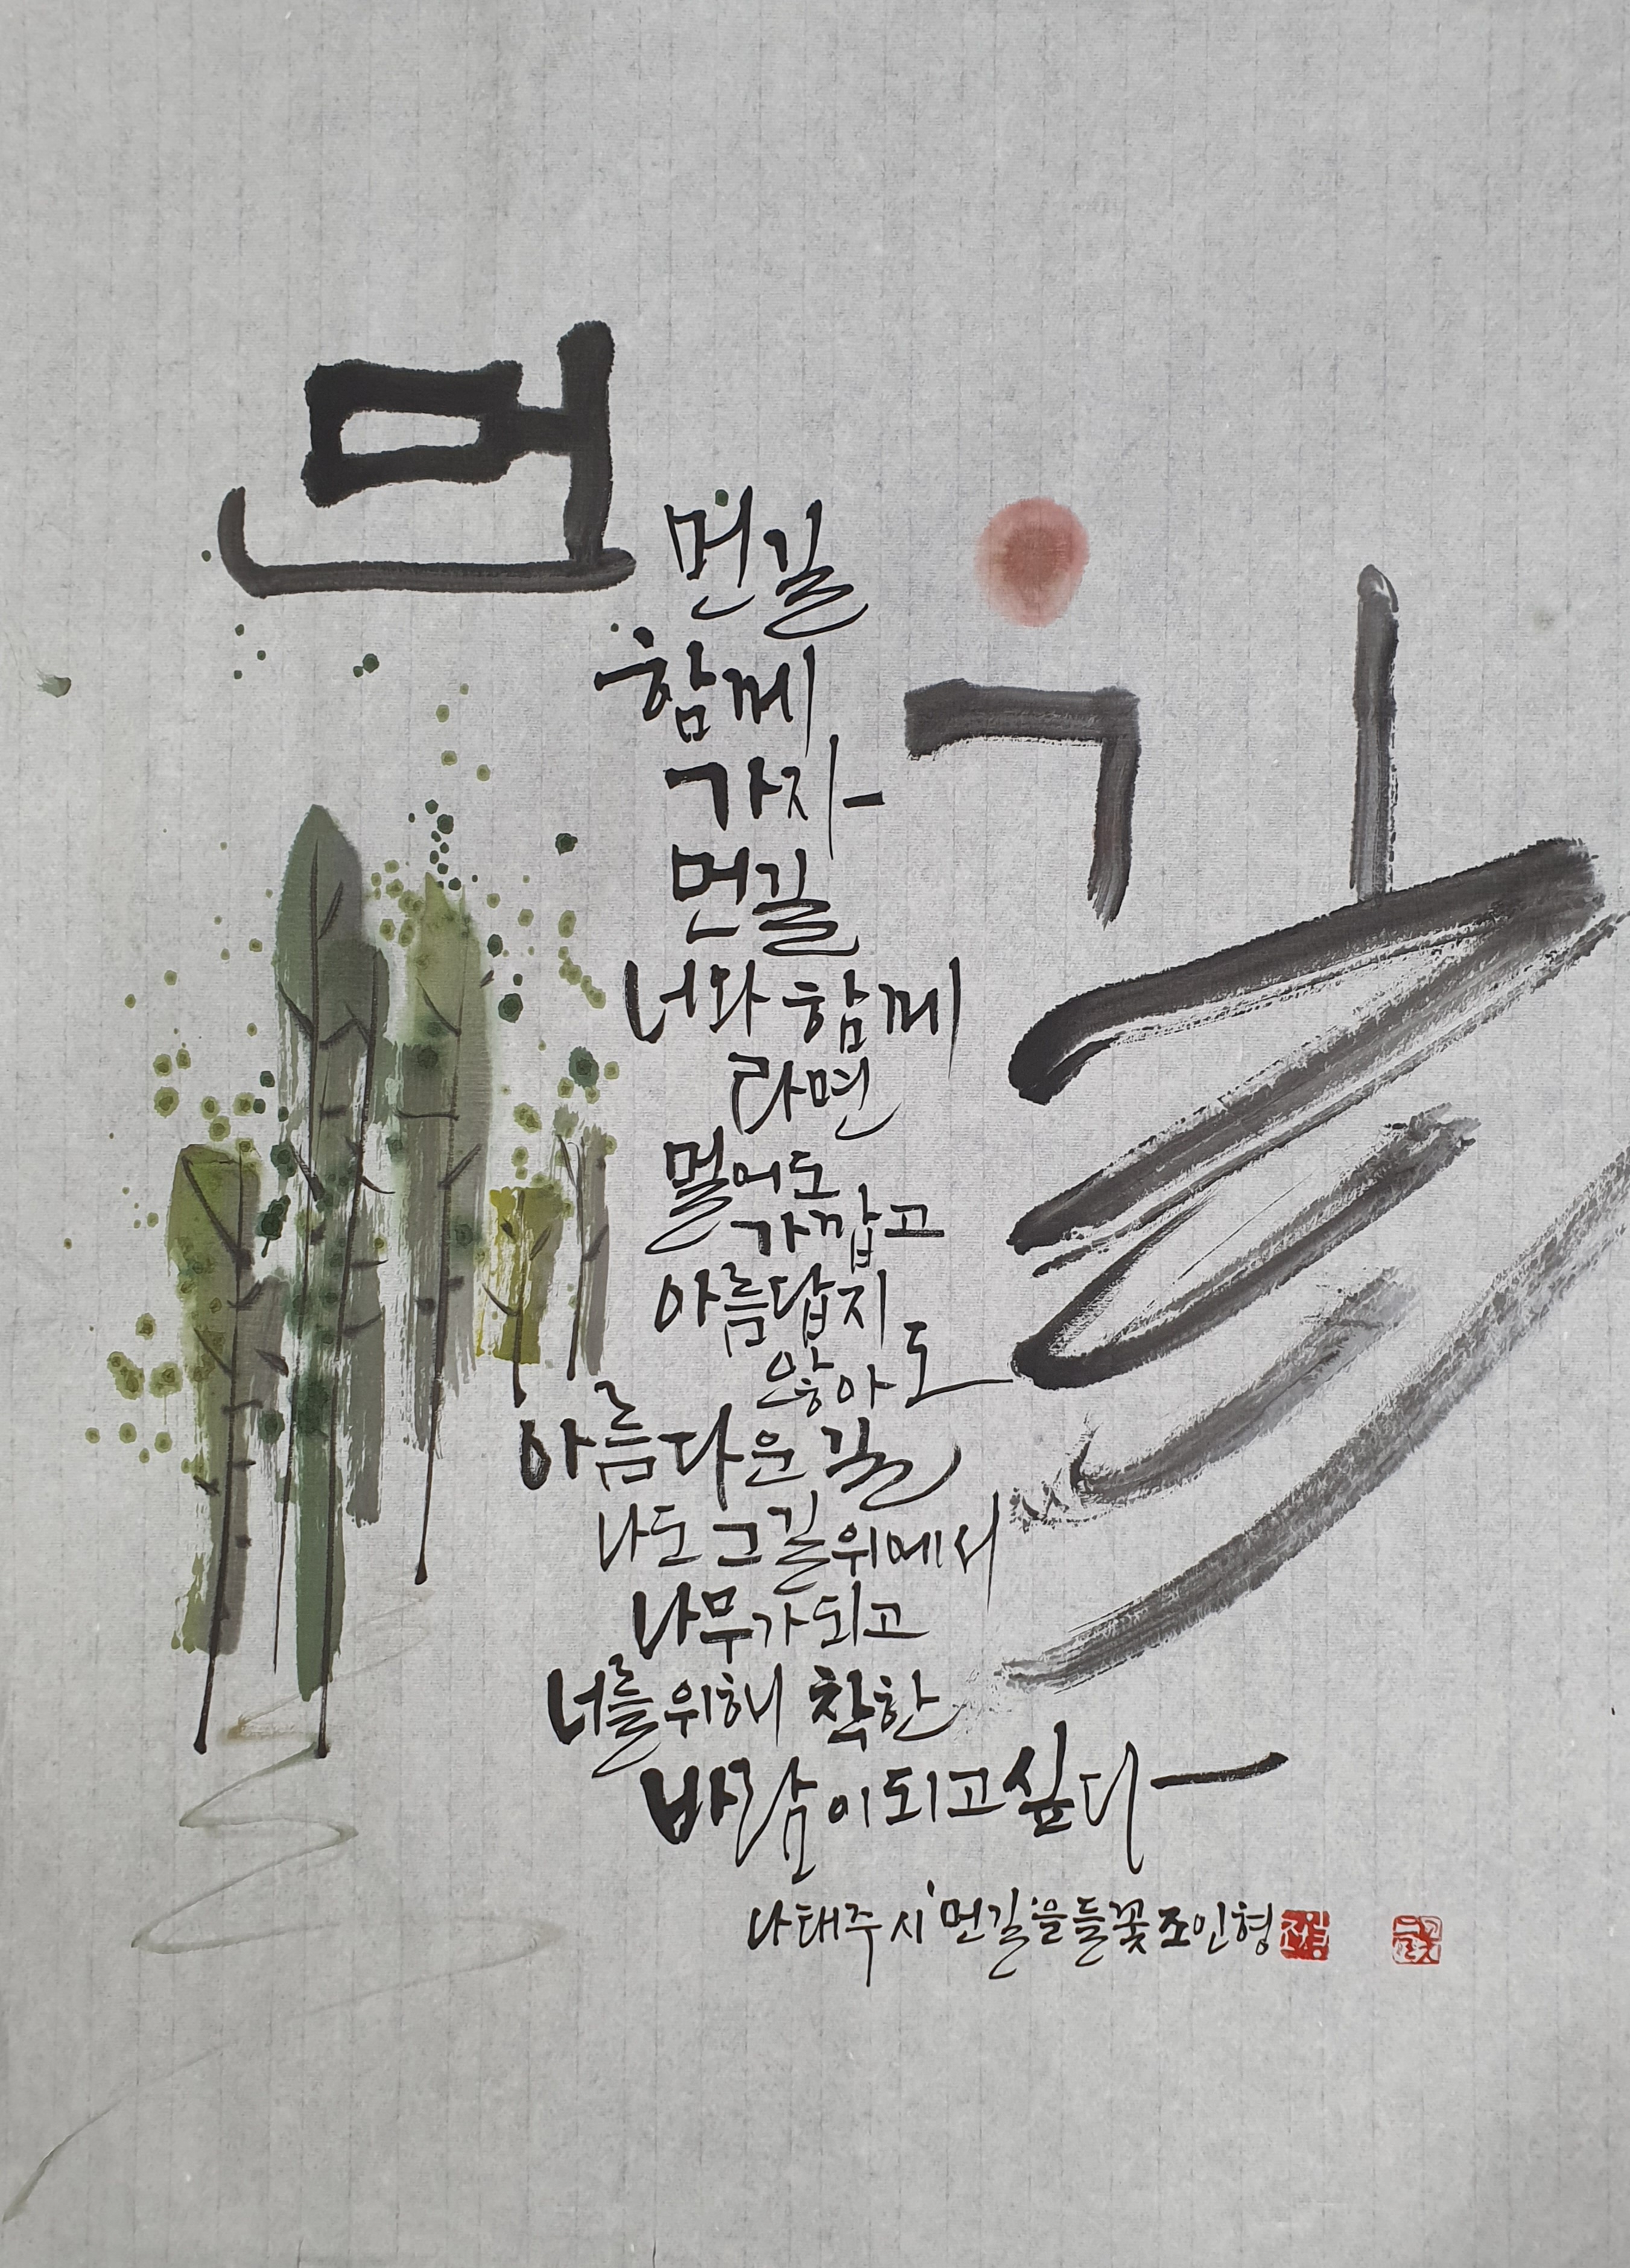 먼 길
먼길
함께
가자
먼길
너와 함께
라면
멀어도
가깝고
아름답지
않아도
아름다운 길
나도 그길 위에서
나무가 되고
너를 위해 착한
바람이 되고 싶다
나태주 시 '먼길'을 들꽃 조인형